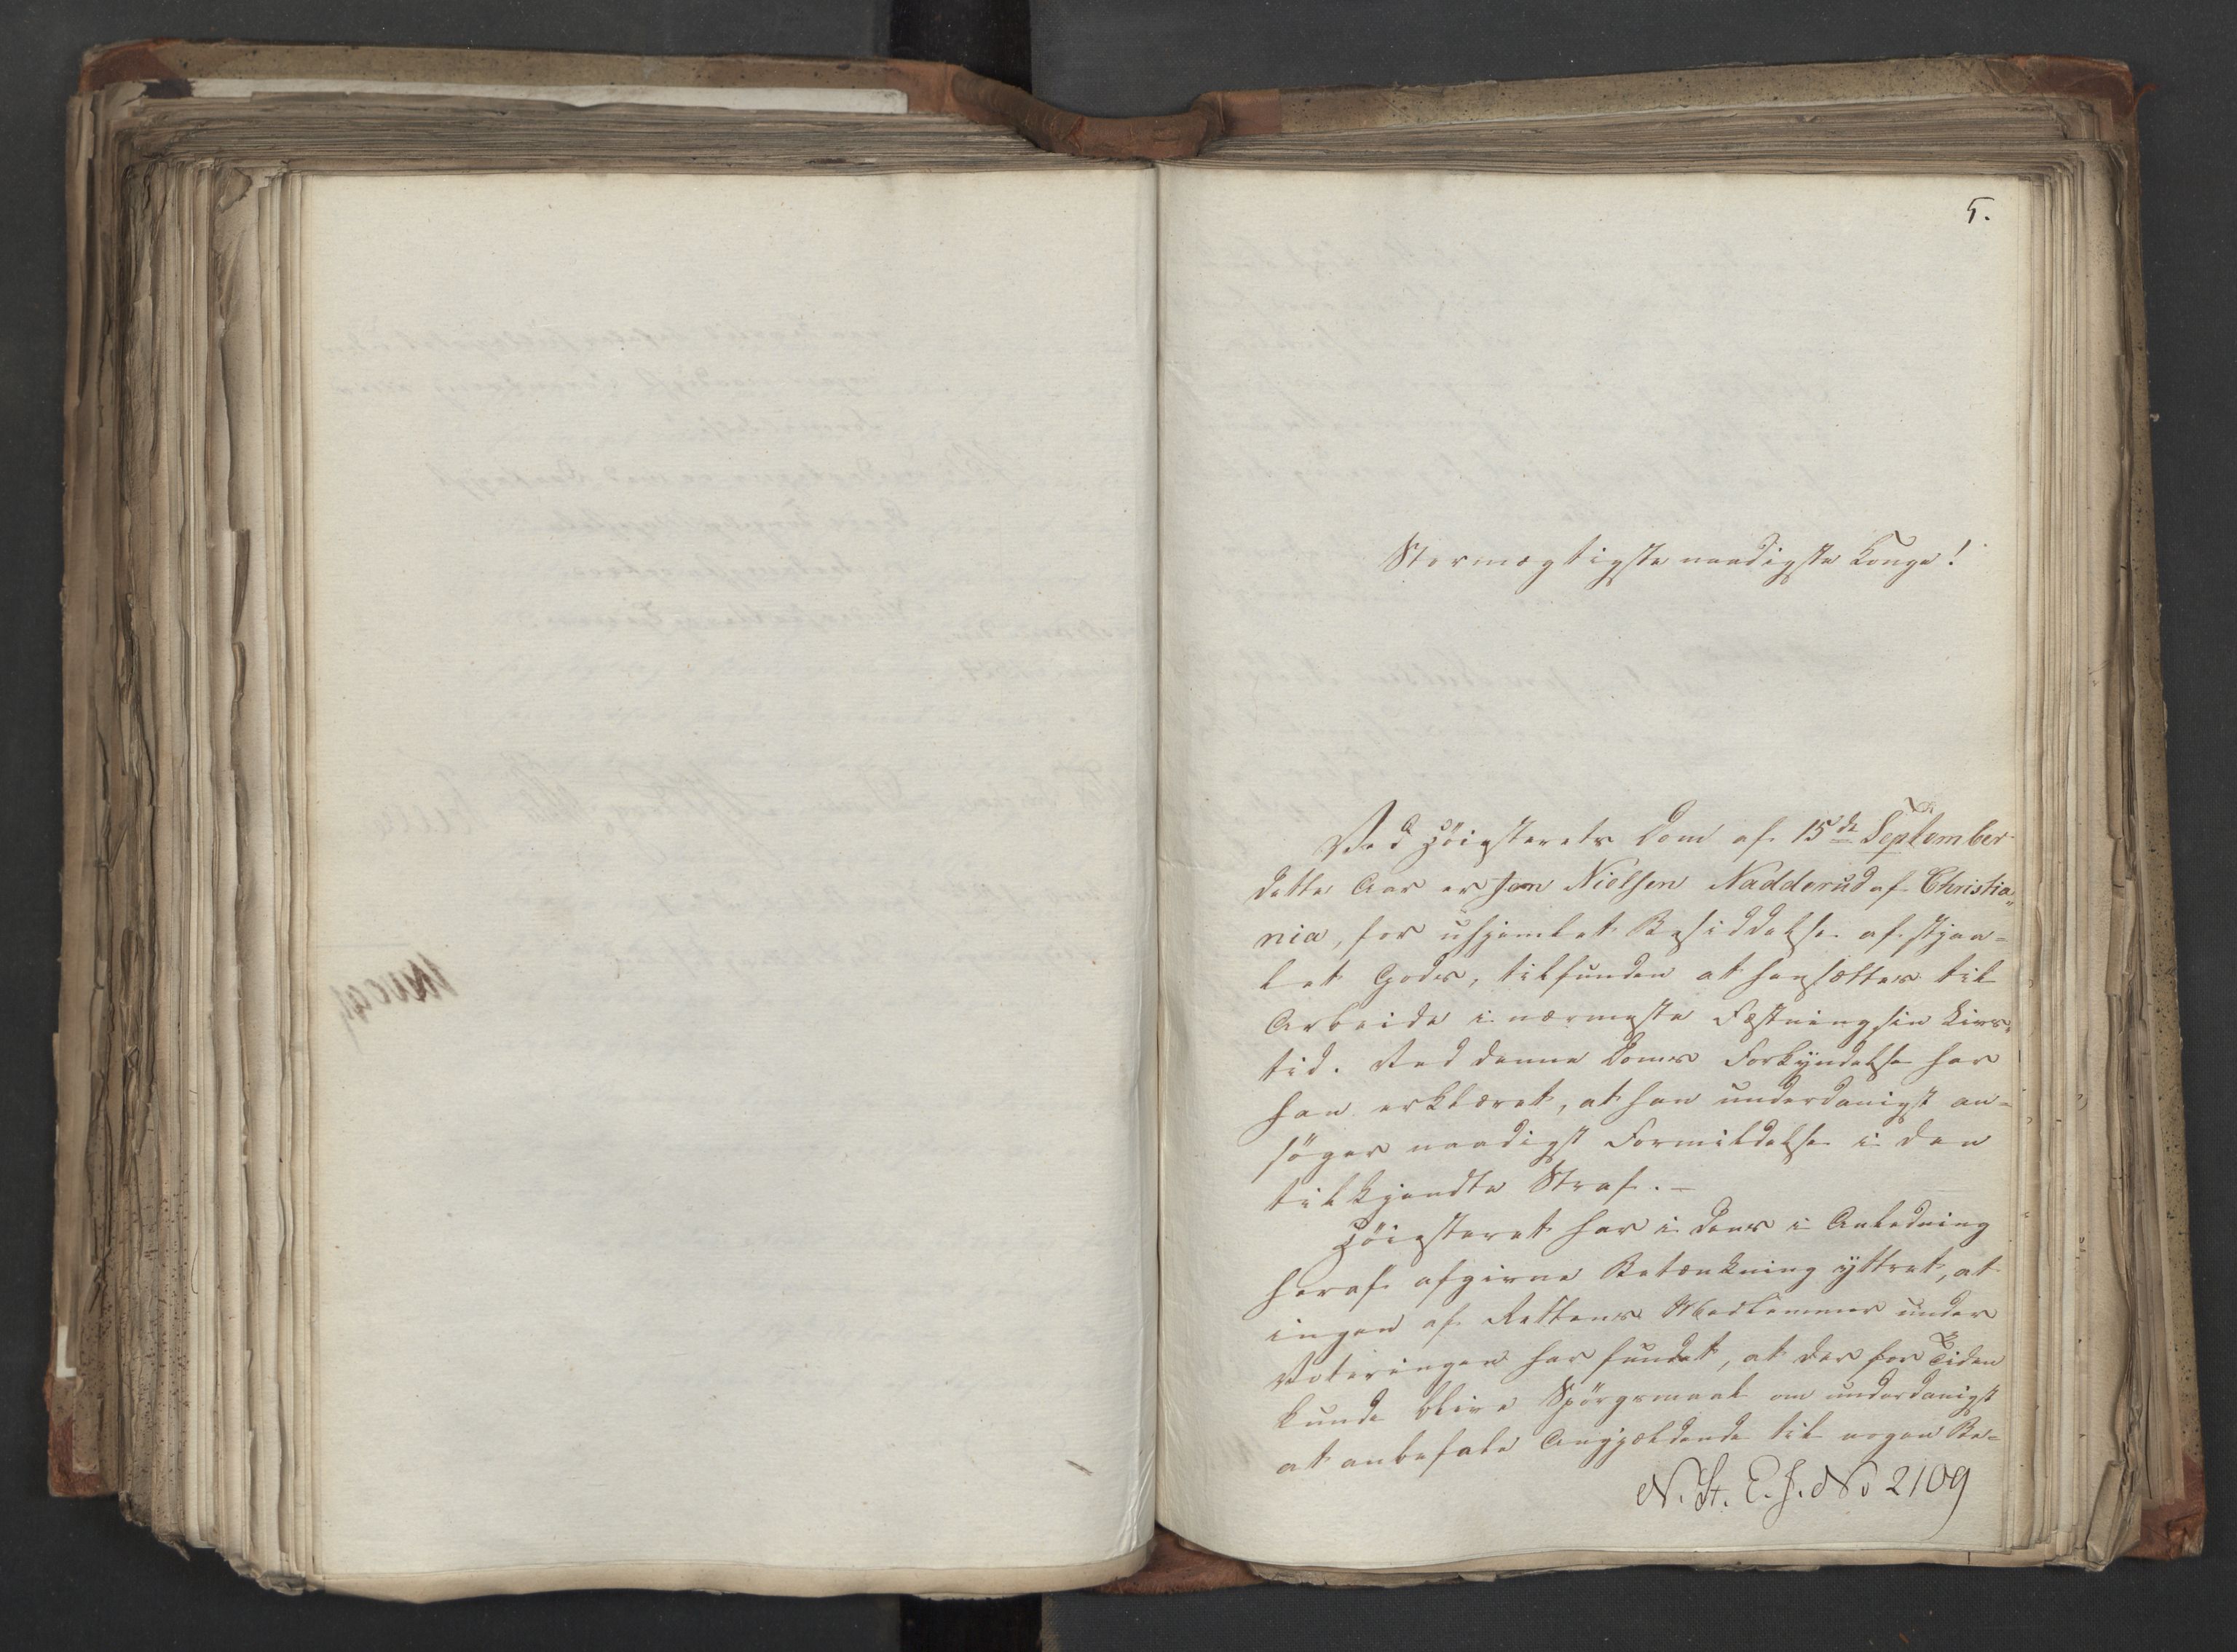 5.
Stormægtigste naadigste Konge!
Ved Høiesterets Dom af 15de September
dette Aar er Jon Nielsen Nadderud af Christia„
nia, for uhjemlet Besiddelse af stjaa=
let Gods, tilfunden at hensættes til
Arbeide i nærmeste Fæstning sin Livs„
tid. Ved denne Doms Forkyndelse har
han erklæret, at han underdanigst an=
søger naadigst Formildelse i den
tilkjendte Straf. –
Høiesteret har i dens i Anledning
heraf afgivne Betænkning yttret, at
ingen af Rettens Medlemmer under
Voteringen har fundet, at der for Tiden
kunde blive Spørgsmaal om underdanigst
at anbefale Angjældende til nogen Be=
N. St. E. J. No 2109